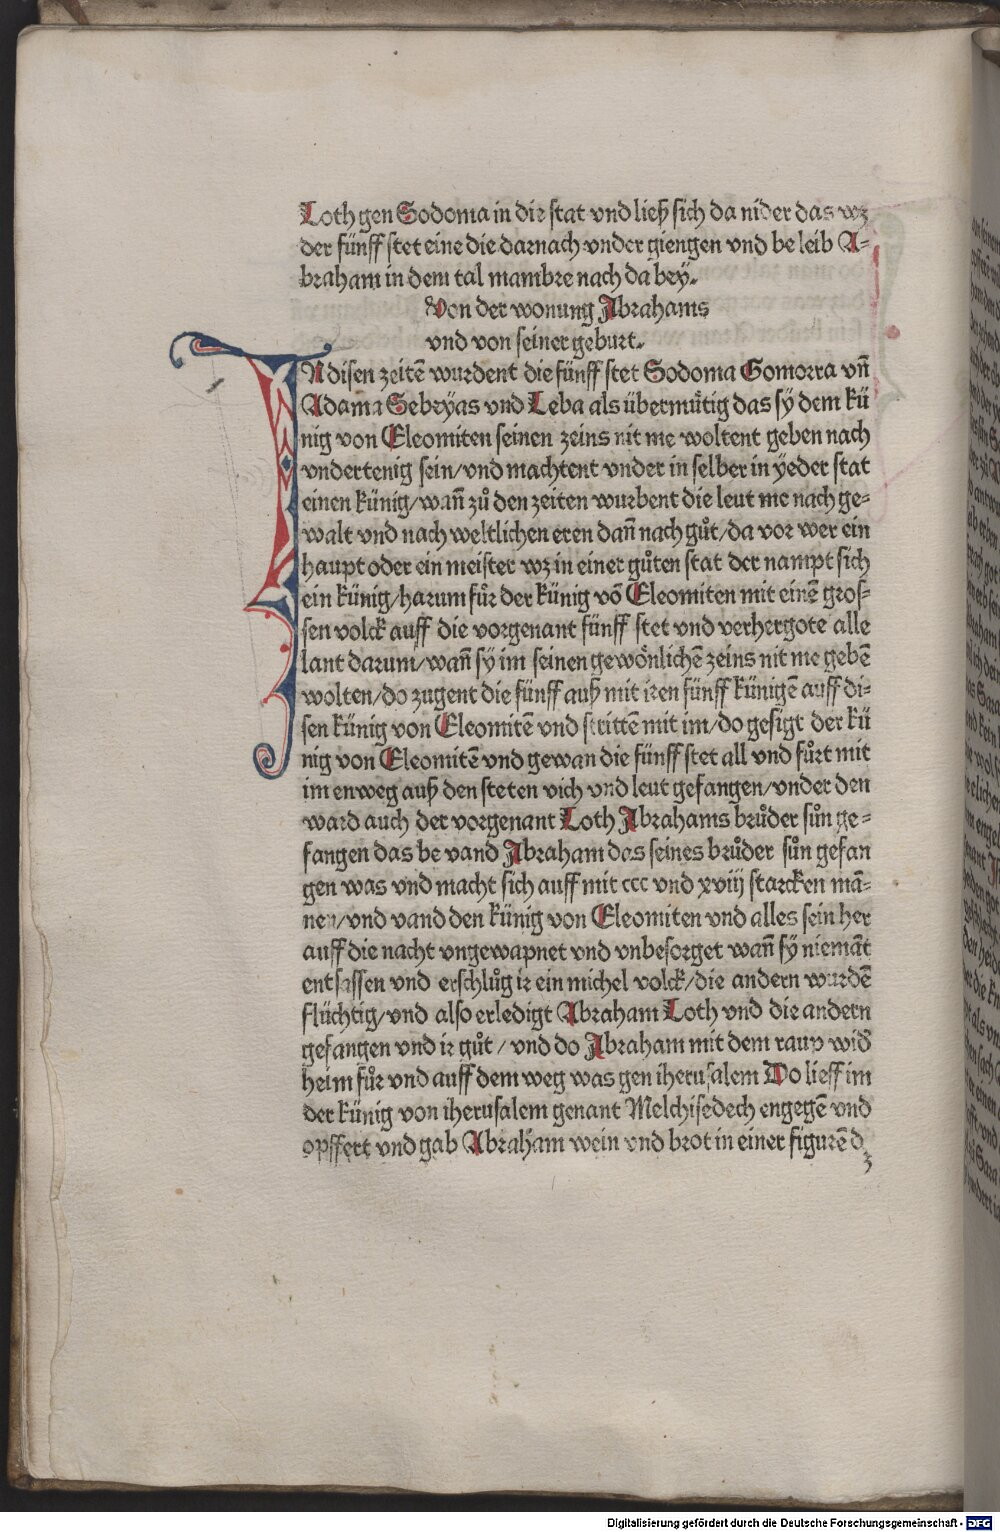 Loth gen Sodoma in die stat vnd ließ sich da nider das wz
der fünff stet eine die darnach vnder giengen vnd be leib A-
braham in dem tal mambre nach da bey.
Von der wonung Abrahams
vnd von seiner geburt.
IN disen zeitē wurdent die fünff stet Sodoma Gomorra vn̄
Adama Sebeÿas vnd Leba als übermůtig das sÿ dem kü
nig von Eleomiten seinen zeins nit me woltent geben nach
vndertenig sein/vnd machtent vnder in selber in ÿeder stat
einen künig/wan̄ zů den zeiten wurbent die leut me nach ge-
walt vnd nach weltlichen eren dan̄ nach gůt/da vor wer ein
haupt oder ein meister wz in einer gůten stat der nampt sich
ein künig/harum fůr der künig vō Eleomiten mit einē gros-
sen volck auff die vorgenant fünff stet vnd verhergote alle
lant darum/wan̄ sÿ im seinen gewönlichē zeins nit me gebē
wolten/do zugent die fünff auß mit iren fünff künigē auff di-
sen künig von Eleomitē vnd strittē mit im/do gesigt der kü
nig von Eleomitē vnd gewan die fünff stet all vnd fůrt mit
im enweg auß den steten vich vnd leut gefangen/vnder den
ward auch der vorgenant Loth Abrahams brůder sůn ge-
fangen das be vand Abraham das seines brůder sůn gefan
gen was vnd macht sich auff mit ccc vnd xviij starcken mā-
nen/vnd vand den künig von Eleomiten vnd alles sein her
auff die nacht vngewapnet vnd vnbesorget wan̄ sÿ niemāt
entsassen vnd erschlůg ir ein michel volck/die andern wurdē
flüchtig/vnd also erledigt Abraham Loth vnd die andern
gefangen vnd ir gůt/vnd do Abraham mit dem raup wid̄
heim fůr vnd auff dem weg was gen iherusalem Do lieff im
der künig von iherusalem genant Melchisedech engegē vnd
opffert vnd gab Abraham wein vnd brot in einer figurē dz
Digitalisierung gefördert durch die Deutsche Forschungsgemeinschaft - DFG